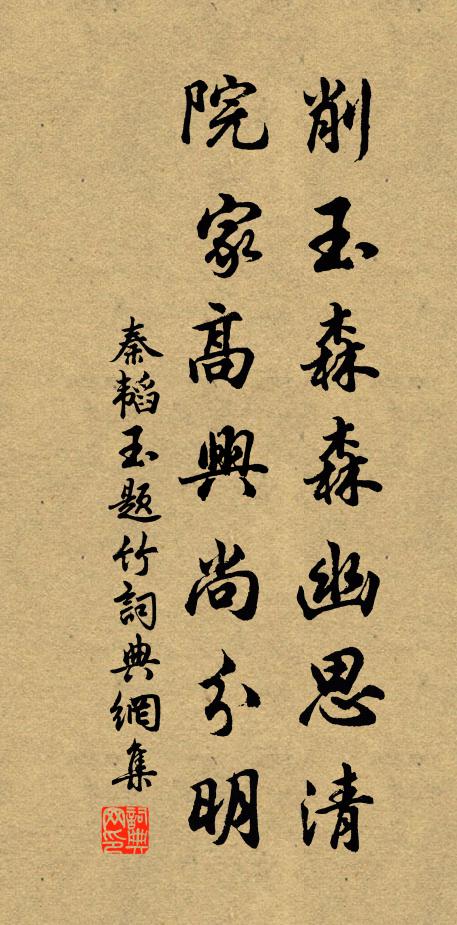 削玉森森幽思清
院家高興尚分明
秦韬玉題竹詞典網集
詞典
网印